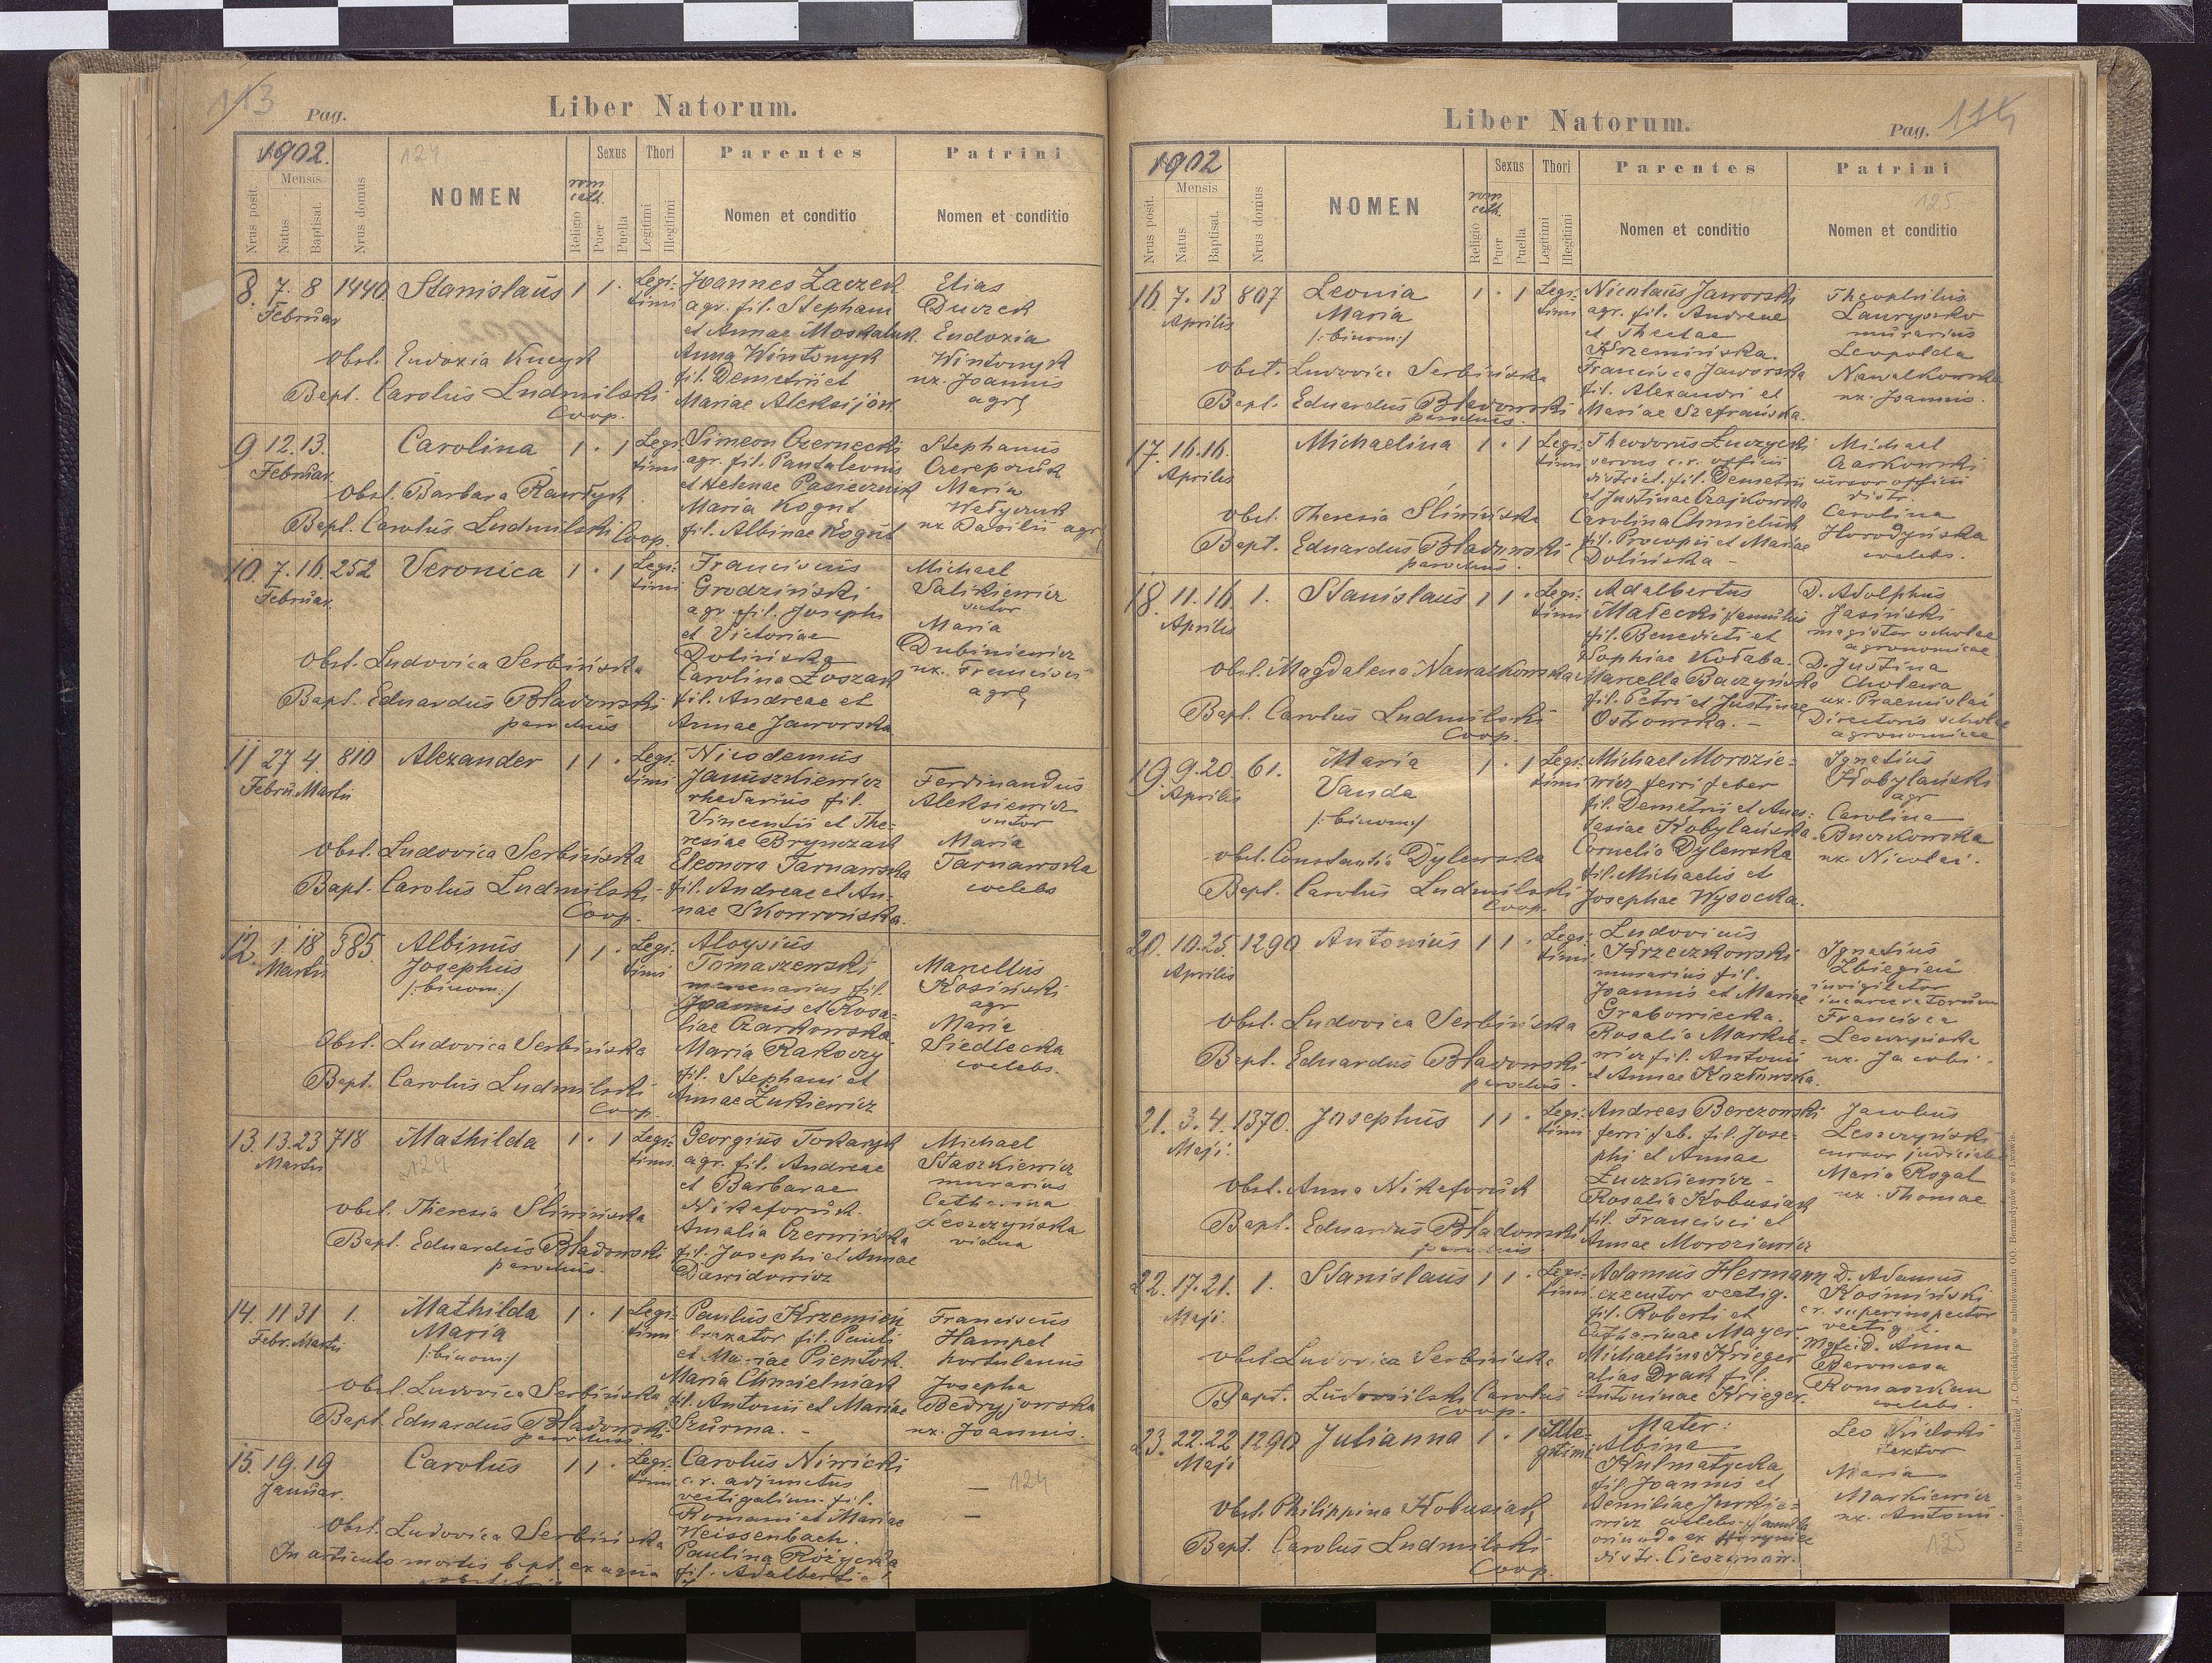 113
Pag.
Liber Natorum.
1902.
124
Mensis
Nrus posit.
Natus
Baptisat.
Nrus domus
NOMEN
rom cath.
Religio
Sexus
Puer
Puella
Thori
Legitimi
Illegitimi
Parentes
Nomen et conditio
Patrini
Nomen et conditio
8. 7. 8 1440 Stanislaus 1 1 · Legi:
timi
Februar
Joannes Zaczek
agr. fil. Stephani
et Annae Moskaluk
Anna Wintonyk
fil. Demetrii et
Mariae Aleksijów
Elias
Duczek
Eudoxia
Wintonyk
ux. Joannis
agr.
Obst. Eudoxia Kucyk
Bapt. Carolus Ludmilski
Coop.
9 12. 13. Carolina 1 · 1 Legi:
timi
Februar.
Simeon Czernecki
agr. fil. Pantaleonis
et Helenae Pasiecznik
Maria Kogut
fil. Albinae Kogut
Stephanus
Czereposzuk
Maria
ux. Danilii agr.
Obst. Barbara
Bapt. Carolus Ludmilski Coop.
10. 7. 16. 252 Veronica 1 · 1 Legi:
timi
Februar.
Franciscus
Grodziński
agr. fil. Josephi
et Victoriae
Dolińska
Carolina Łoszak
fil. Andreae et
Annae Jaworska
Michael
Salikiewicz
sutor
Maria
Dubiniewicz
ux. Francisci
agr.
Obst. Ludovica Serbińska
Bapt. Eduardus Bładowski
parochus
11 27 4. 810 Alexander 1 1 · Legi:
timi
Febru. Martii
Nicodemus
Januszkiewicz
rhedarius fil.
Vincentii et The:
resiae Brynczak
Eleonora Tarnawska
fil. Andreae et An:
nae Skowrońska.
Ferdinandus
Aleksiewicz
sutor
Maria
Tarnawska
coelebs
Obst. Ludovica Serbińska
Bapt. Carolus Ludmilski
Coop.
12. 1. 18 385. Albinus 1 1 · Legi:
timi
Martii
Josephus
/:binom:/
Aloysius
Tomaszewski
mercenarius fil.
Joannis et Rosa:
liae Czarkowska.
Maria Rakoczy
fil. Stephani et
Annae Żukiewicz
Marcellus
Kosiński
agr
Maria
Siedlecka
coelebs.
Obst. Ludovica Serbińska
Bapt. Carolus Ludmilski
Coop.
13. 13. 23 718 Mathilda 1 · 1 Legi:
timi.
Martii
124
Georgius Tokaryk
agr. fil. Andreae
et Barbarae
Nikeforuk.
Amalia Czerwińska
fil. Josephi et Annae
Dawidowicz
Michael
Staszkiewicz
murarius
Catharina
Leszczyńska
vidua
Obst. Theresia Śliwińska
Bapt. Eduardus Bładowski
parochus.
14. 11 31 1. Mathilda 1 · 1 Legi:
timi
Febr. Martii
Maria
/:binom:/
Paulus Krzemień
braxator fil. Pauli
et Mariae Pientok.
Maria Chmielniak
fil. Antonii et Mariae
Szurma. -
Franciscus
Hampel
hortulanus
Josepha
Bedryjowska
ux. Joannis.
Obst. Ludovica Serbińska
Bapt. Eduardus Bładowski
parochus
15. 19. 19 Carolus 1 1 · Legi:
timi
Januar.
Carolus Niwicki
c. r. adjunctus
vectigalium. fil.
Romani et Mariae
Weissenbach.
Paulina Różycka
fil. Adalberti
—
124
—
Obst. Ludovica Serbińska
In articulo mortis bapt. ex aqua
Liber Natorum.
Pag. 114
1902
Mensis
Nrus posit.
Natus
Baptisat.
Nrus domus
NOMEN
rom cath.
Religio
Sexus
Puer
Puella
Thori
Legitimi
Illegitimi
Parentes
Nomen et conditio
Patrini
125
Nomen et conditio
16 7. 13 807 Leonia 1 · 1 Legi:
timi
Aprilis
Maria
/:binom:/
Nicolaus Jaworski
agr. fil. Andreae
et Theclae
Krzemińska.
Francisca Jaworska
fil. Alexandri et
Mariae Szefrańska.
Theophilus
murarius
Leopolda
Nawalkowska
ux. Joannis.
Obst. Ludovica Serbińska
Bapt. Eduardus Bładowski
parochus.
17. 16. 16. Michaelina 1 · 1 Legi:
timi
Aprilis
Theodorus Łuczycki
servus c. r. officii
district. fil. Demetrii
et Justinae Czajkowska
Carolina Chmieluk
fil. Procopii et Mariae
Dolińska -
Michael
Czarkowski
cursor officii
distr.
Carolina
Horodyńska
coelebs.
Obst. Theresia Śliwińska
Bapt. Eduardus Bładowski
parochus.
18. 11. 16. 1. Stanislaus 1 1 · Legi:
timi
Aprilis
Adalbertus
Małecki famulus
fil. Benedicti et
Sophiae Kołaba.
Marcella Baczyńska
fil. Petri et Justinae
Ostrowska. -
D. Adolphus
Jasiński
magister scholae
agronomicae
D. Justina
Cholewa
ux. Praemislai
Directoris scholae
agronomicae
Obst. Magdalena Nawalkowska
Bapt. Carolus Ludmilski
Coop.
19. 9. 20. 61. Maria 1 · 1 Legi:
timi
Aprilis
Vanda
/:binom:/
Michael Morozie:
wicz ferri faber
fil. Demetrii et Anas:
tasiae Kobylańska.
Cornelia Dylewska
fil. Michaelis et
Josephae Wysocka.
Ignatius
Kobylański
agr
Carolina
Buczkowska
ux. Nicolai.
Obst. Constantia Dylewska
Bapt. Carolus Ludmilski
Coop.
20. 10. 25. 1290 Antonius 1 1 · Legi:
timi.
Aprilis
Ludovicus
Krzeczkowski
murarius fil.
Joannis et Mariae
Grabowiecka.
Rosalia Markie:
wicz fil. Antonii
et Annae Kozłowska.
Ignatius
Zbiegień
invigilator
incarceratorum
Francisca
Leszczyńska
ux. Jacobi.
Obst. Ludovica Serbińska
Bapt. Eduardus Bładowski
parochus.
21. 3. 4. 1370. Josephus 1 1 · Legi:
timi
Maji.
Andreas Berezowski
ferri fab. fil. Jose:
phi et Annae
Łuczkiewicz -
Rosalia Kobusiak
fil. Francisci et
Annae Moroziewicz
Jacobus
Leszczyński
cursor judicialis
Maria Rogal
ux. Thomae
Obst. Anna Nikeforuk
Bapt. Eduardus Bładowski
parochus
22. 17. 21. 1. Stanislaus 1 1 · Legi:
timi
Maji.
Adamus Hermann
executor vectig.
fil. Roberti et
Catharinae Mayer.
Michaelina Krieger
alias Drak fil.
Antoninae Krieger.
D. Adamus
Kosmiński
c. r. superinspector
vectigal.
D. Anna
Baronessa
Romaszkan
coelebs.
Obst. Ludovica Serbińska
Bapt. Ludmilski Carolus
Coop.
23. 22. 22 1290 Julianna 1 · 1 Ille:
gitimi
Maji
Mater:
Albina
Kulmatycka
fil. Joannis et
Aemiliae Jurkie:
wicz coelebs famula
oriunda ex
distr. Cieszanow.
Leo Kielski
textor
Maria
Markiewicz
ux. Antonii.
125
Obst. Philippina Kobusiak
Bapt. Carolus Ludmilski
Coop.
Do nabycia w drukarni katolickiej J. Chęcińskiego w zabudowaniu OO. Bernardynów we Lwowie.